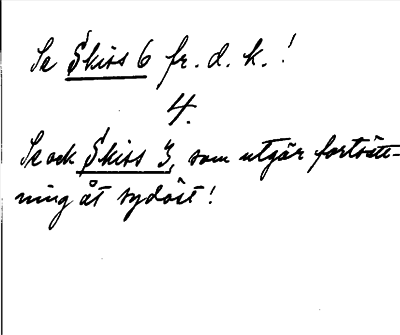 Se Skiss 6 fr. d. k. !
4.
Se ock Skiss 3, som utgör fortsätt-
ning åt sydöst !